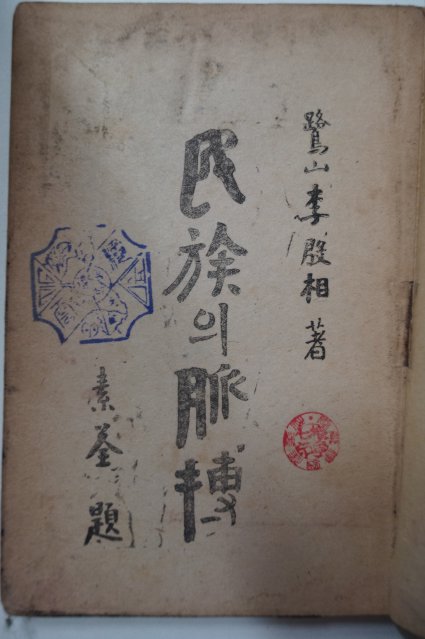 鷺山 李殷相 著
民族의 脈搏
素荃 題